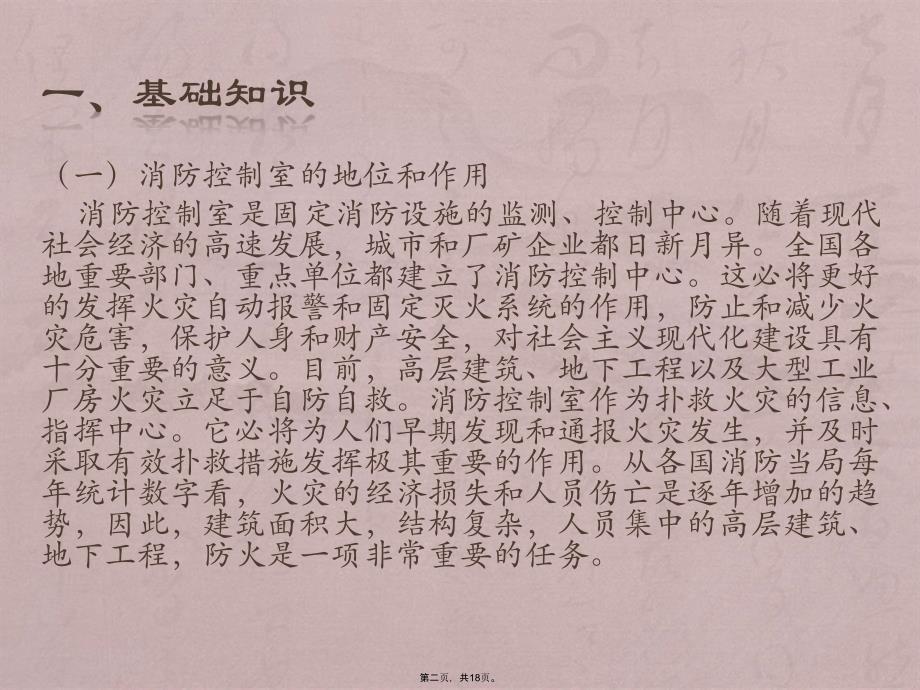 一、基础知识
（一）消防控制室的地位和作用
消防控制室是固定消防设施的监测、控制中心。随着现代
社会经济的高速发展，城市和厂矿企业都日新月异。全国各
地重要部门、重点单位都建立了消防控制中心。这必将更好
的发挥火灾自动报警和固定灭火系统的作用，防止和减少火
灾危害，保护人身和财产安全，对社会主义现代化建设具有
十分重要的意义。目前，高层建筑、地下工程以及大型工业
厂房火灾立足于自防自救。消防控制室作为扑救火灾的信息、
指挥中心。它必将为人们早期发现和通报火灾发生，并及时
采取有效扑救措施发挥极其重要的作用。从各国消防当局每
年统计数字看，火灾的经济损失和人员伤亡是逐年增加的趋
势，因此，建筑面积大，结构复杂，人员集中的高层建筑、
地下工程，防火是一项非常重要的任务。
第二页，共18页。